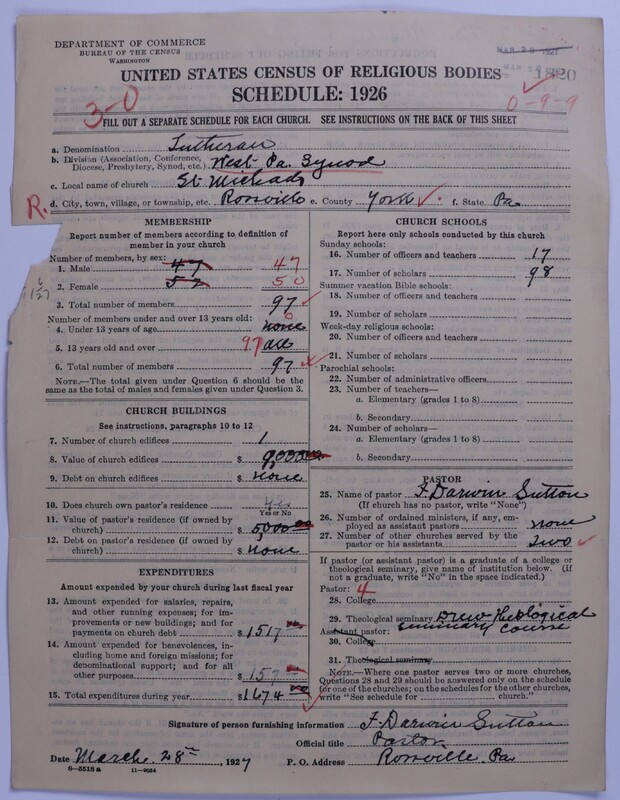 DEPARTMENT OF COMMERCE
BUREAU OF THE CENSUS
WASHINGTON
MAR 29 1927
1820
UNITED STATES CENSUS OF RELIGIOUS BODIES
SCHEDULE: 1926
3-0
0-9-9
FILL OUT A SEPARATE SCHEDULE FOR EACH CHURCH. SEE INSTRUCTIONS ON THE BACK OF THIS SHEET
a. Denomination Lutheran
b. Division (Association, Conference, Diocese, Presbytery, Synod, etc.) West Pa. Synod
c. Local name of church St. Michaels
R. d. City, town, village, or township, etc. Rossville e. County York f. State Pa
MEMBERSHIP
Report number of members according to definition of member in your church
Number of members, by sex:
1. Male 47 47
2. Female 52 50
3. Total number of members 97
Number of members under and over 13 years old:
4. Under 13 years of age none 0
5. 13 years old and over 97 all
6. Total number of members 97
NOTE.—The total given under Question 6 should be the same as the total of males and females given under Question 3.
CHURCH BUILDINGS
See instructions, paragraphs 10 to 12
7. Number of church edifices 1
8. Value of church edifices $ 9,000 00
9. Debt on church edifices $ none
10. Does church own pastor's residence Yes
Yes or No
11. Value of pastor's residence (if owned by church) $ 5,000 00
12. Debt on pastor's residence (if owned by church) $ none
EXPENDITURES
Amount expended by your church during last fiscal year
13. Amount expended for salaries, repairs, and other running expenses; for improvements or new buildings; and for payments on church debt $ 1517
14. Amount expended for benevolences, including home and foreign missions; for denominational support; and for all other purposes 157
15. Total expenditures during year $ 1674 00
CHURCH SCHOOLS
Report here only schools conducted by this church
Sunday schools:
16. Number of officers and teachers 17
17. Number of scholars 98
Summer vacation Bible schools:
18. Number of officers and teachers
19. Number of scholars
Week-day religious schools:
20. Number of officers and teachers
21. Number of scholars
Parochial schools:
22. Number of administrative officers
23. Number of teachers—
a. Elementary (grades 1 to 8)
b. Secondary
24. Number of scholars—
a. Elementary (grades 1 to 8)
b. Secondary
PASTOR
25. Name of pastor F. Darwin Sutton
(If church has no pastor, write "None")
26. Number of ordained ministers, if any, employed as assistant pastors none
27. Number of other churches served by the pastor or his assistants two
If pastor (or assistant pastor) is a graduate of a college or theological seminary, give name of institution below. (If not a graduate, write "No" in the space indicated.)
Pastor: 4
28. College
29. Theological seminary Drew Theological
Seminary Course
Assistant pastor:
30. College
31. Theological seminary
NOTE.—Where one pastor serves two or more churches, Questions 28 and 29 should be answered only on the schedule for one of the churches; on the schedules for the other churches, write "See schedule for church."
Signature of person furnishing information F. Darwin Sutton
Official title Pastor
Date March 28th, 1927 P. O. Address Rossville Pa
8-5518a 11-9034